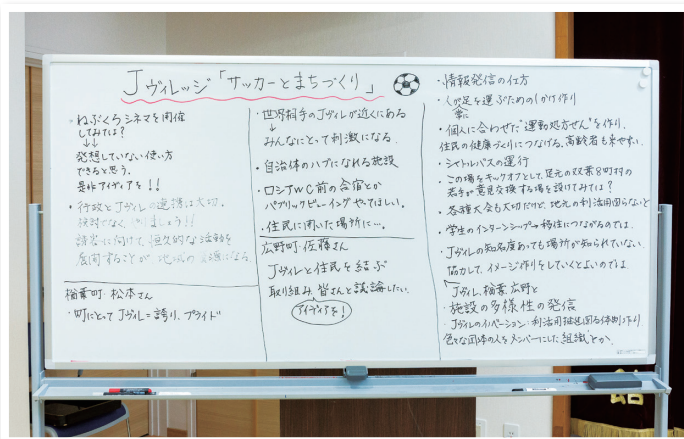 Jヴィレッジ「サッカーとまちづくり」
・ねぶくろシネマを開催
してみては?
↓↓
発想していない使い方
できると思う。
是非アイディアを!!
・行政とJヴィレの連携は大切。
検討でなく、やりましょう!!
請客に向けて、恒久的な活動を
展開することが地域の支援になる
楢葉町・松本さん
・町にとってJヴィレ=誇り、プライド
・世界相手のJヴィレが近くにある
↓
みんなにとって刺激になる。
・自治体のハブになれる施設
・ロシアWC前の合宿とか
パブリックビューイングやってほしい。
・住民に開いた場所に…。
広野町・佐藤さん
Jヴィレと住民を結ぶ
取り組み、皆さんと議論したい。
アイディアを!
・情報発信の仕方
・人が足を運ぶためのしかけ作り
常に
・個人に合わせた"運動処方せん"を作り、
住民の健康づくりにつなげる、高齢者も来やすい。
・シャトルバスの運行
・この場をキックオフとして、足元の双葉8町村の
若手が意見交換する場を設けてみては?
・各種大会も大切だけど、地元の利活用図らないと
・学生のインターンシップ→移住につながるのでは。
・Jヴィレの知名度あっても場所が知られていない。
協力して、イメージ作りをしていくとよいのでは。
Jヴィレ、楢葉、広野と
・施設の多様性の発信
・Jヴィレのイノベーション:利活用推進図る体制作り
色々な団体の人をメンバーにした組織とか。